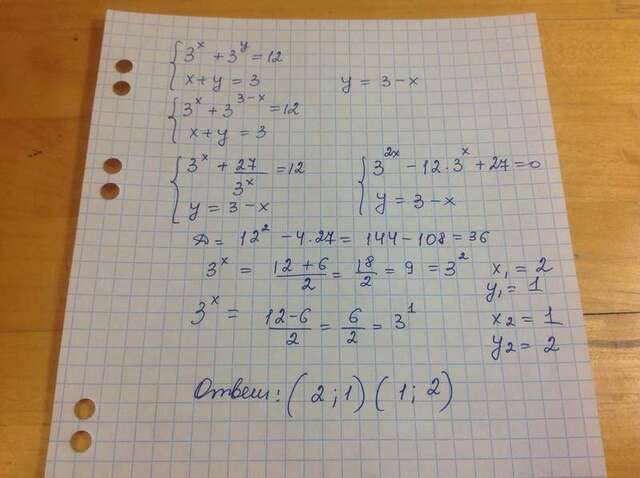 3^x + 3^y = 12
x + y = 3        y = 3 - x
3^x + 3^(3-x) = 12
x + y = 3
3^x + 27/3^x = 12        3^(2x) - 12 · 3^x + 27 = 0
y = 3 - x        y = 3 - x
D = 12^2 - 4 · 27 = 144 - 108 = 36
3^x = (12 + 6)/2 = 18/2 = 9 = 3^2        x₁ = 2
y₁ = 1
3^x = (12 - 6)/2 = 6/2 = 3^1        x₂ = 1
y₂ = 2
Ответ: (2; 1) (1; 2)